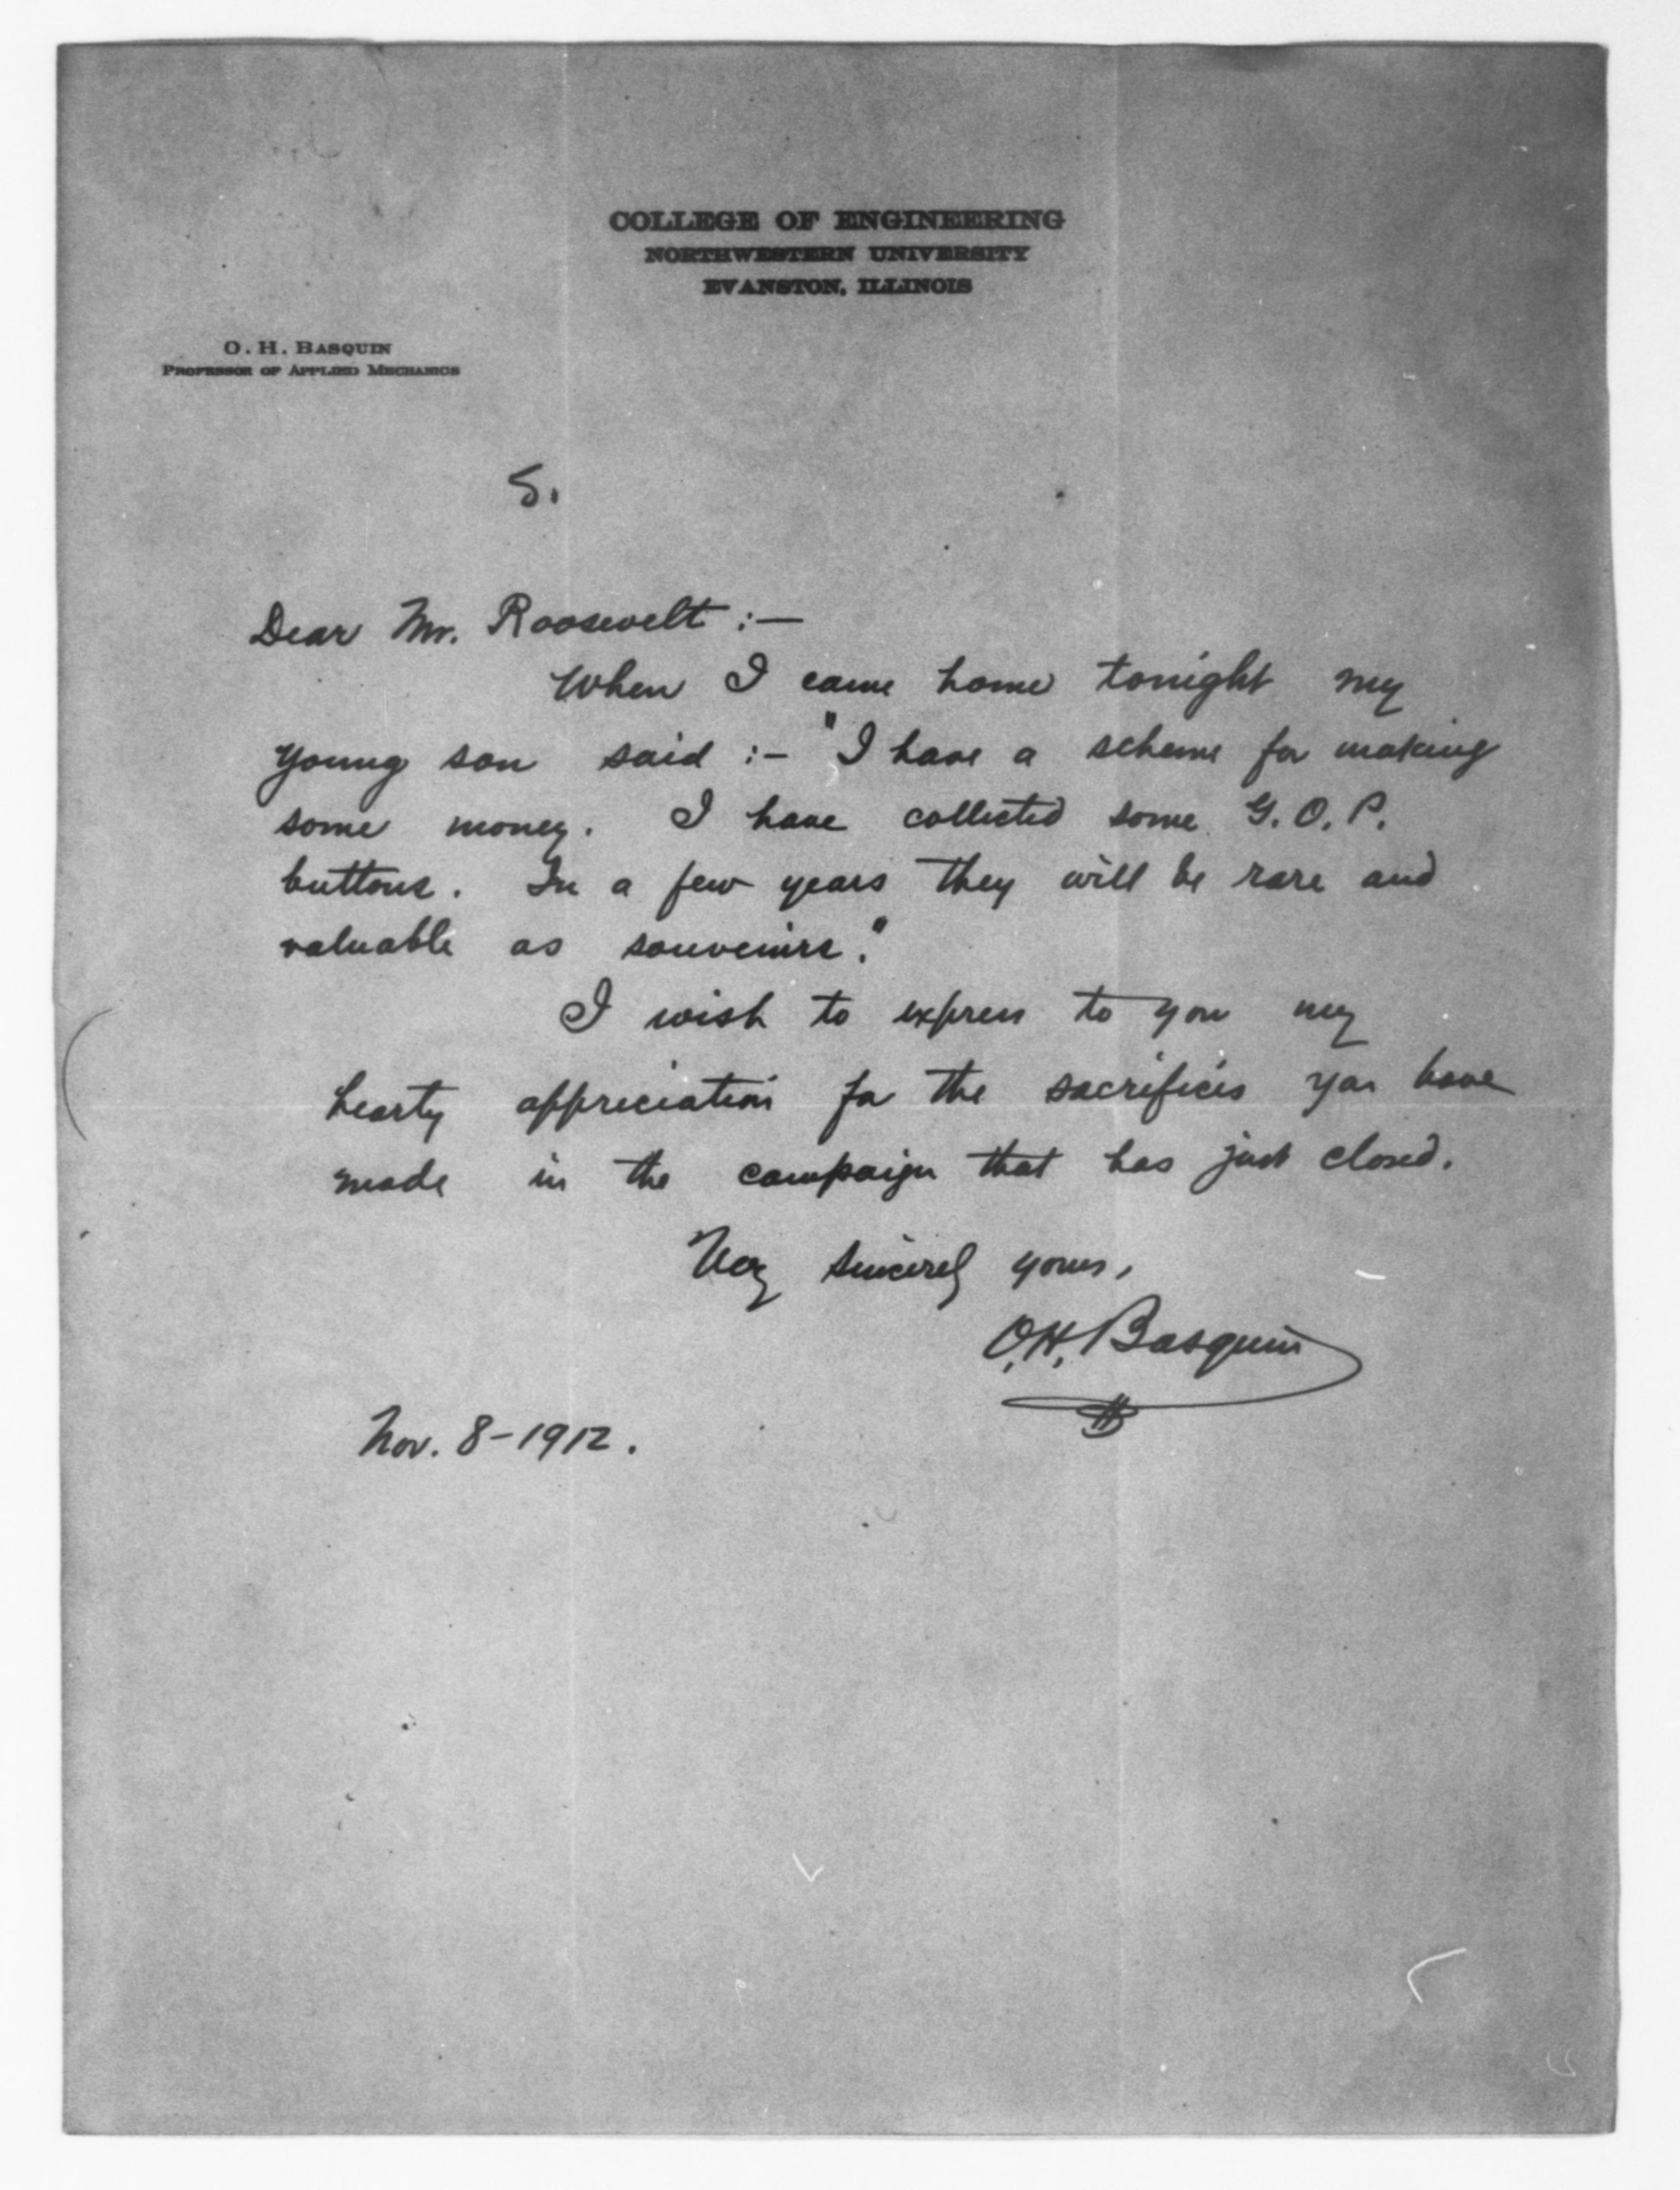 COLLEGE OF ENGINEERING
NORTHWESTERN UNIVERSITY
EVANSTON, ILLINOIS
O. H. BASQUIN
PROFESSOR OF APPLIED MECHANICS
S.
Dear Mr. Roosevelt :—
When I came home tonight my
young son said :- "I have a scheme for making
some money. I have collected some G.O.P.
buttons. In a few years they will be rare and
valuable as souvenirs."
I wish to express to you my
hearty appreciation for the sacrifices you have
made in the campaign that has just closed.
Very sincerely yours,
O.H. Basquin
Nov. 8-1912.